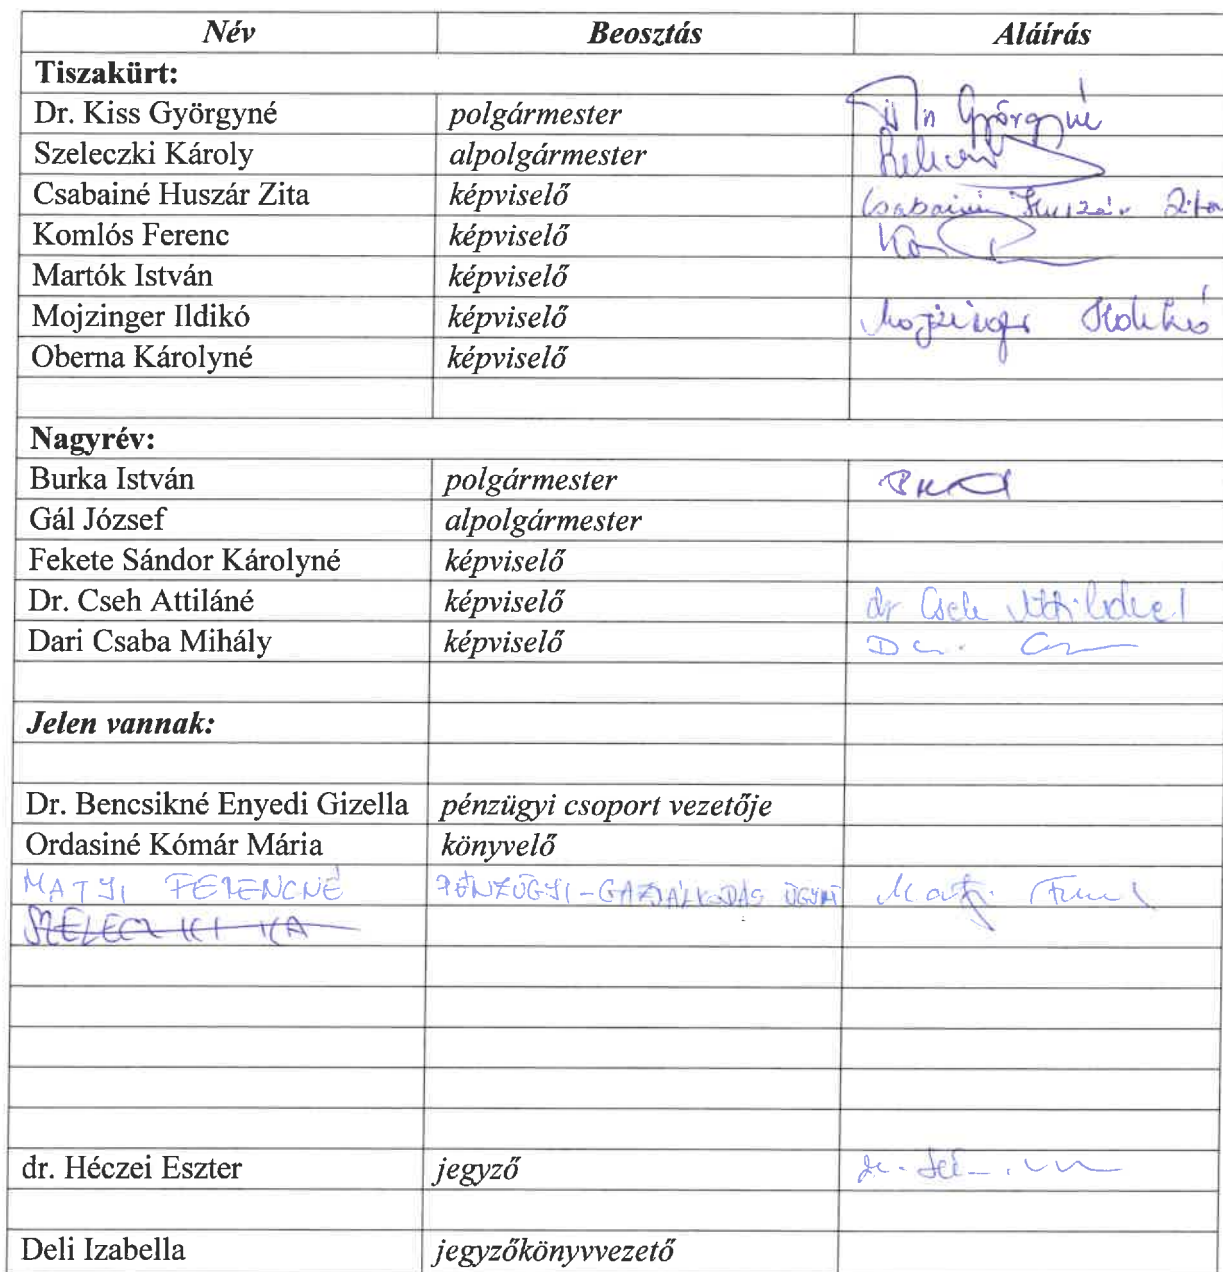 Név Beosztás Aláírás
Tiszakürt:
Dr. Kiss Györgyné polgármester Györgyné
Szeleczki Károly alpolgármester
Csabainé Huszár Zita képviselő Csabainé Huszár Zita
Komlós Ferenc képviselő
Martók István képviselő
Mojzinger Ildikó képviselő Mojzinger Ildikó
Oberna Károlyné képviselő
Nagyrév:
Burka István polgármester
Gál József alpolgármester
Fekete Sándor Károlyné képviselő
Dr. Cseh Attiláné képviselő dr Cseh Attiláné
Dari Csaba Mihály képviselő
Jelen vannak:
Dr. Bencsikné Enyedi Gizella pénzügyi csoport vezetője
Ordasiné Kómár Mária könyvelő
MATYI FERENCNÉ PÉNZÜGYI-GAZDÁLKODÁS
dr. Héczei Eszter jegyző
Deli Izabella jegyzőkönyvvezető